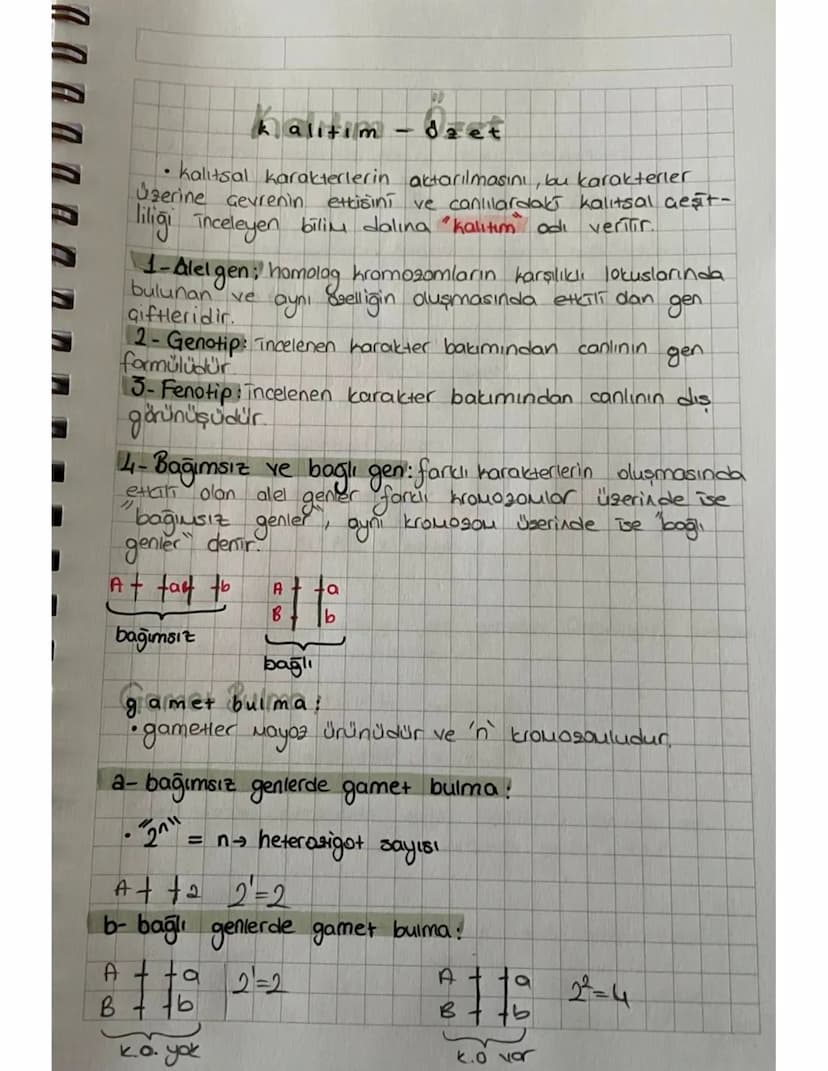 Kalıtım - Özet
• kalıtsal karakterlerin aktarılmasını, bu karakterler
üzerine çevrenin etkisini ve canlılardaki kalıtsal çeşit-
liliği inceleyen bilim dalına "kalıtım" adı verilir.
1- Alel gen; homolog kromozomların karşılıklı lokuslarında
bulunan ve aynı özelliğin oluşmasında etkili olan gen
çiftleridir.
2- Genotip: incelenen karakter bakımından canlının gen
formülüdür.
3- Fenotip: incelenen karakter bakımından canlının dış
görünüşüdür.
4- Bağımsız ve bağlı gen: farklı karakterlerin oluşmasında
etkili olan alel genler farklı kromozomlar üzerinde ise
"bağımsız genler", aynı kromozom üzerinde ise "bağlı
genler" denir.
A a b
bağımsız
A a
B b
bağlı
gamet bulma:
• gametler mayoz ürünüdür ve 'n' kromozomludur.
a- bağımsız genlerde gamet bulma:
• "2ⁿ" = n→ heterozigot sayısı
A a 2¹=2
b- bağlı genlerde gamet bulma:
A a 2¹=2
B b
k.o. yok
A a 2²=4
B b
k.o var